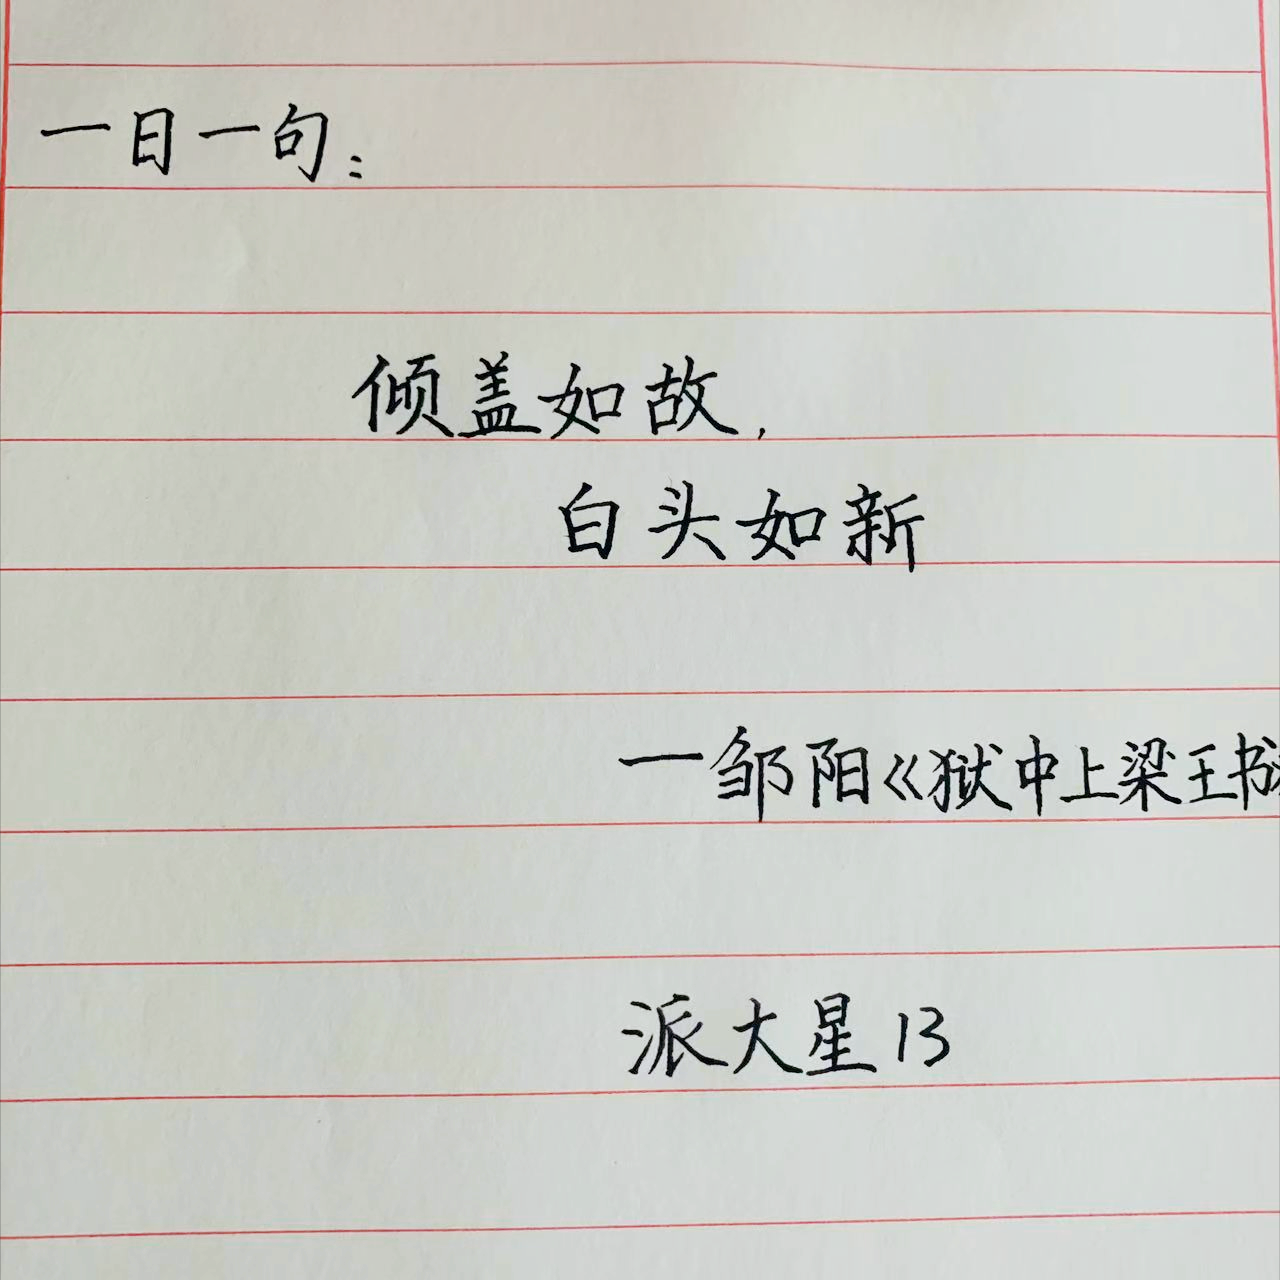 一日一句：
倾盖如故，
白头如新
一邹阳《狱中上梁王书》
派大星13